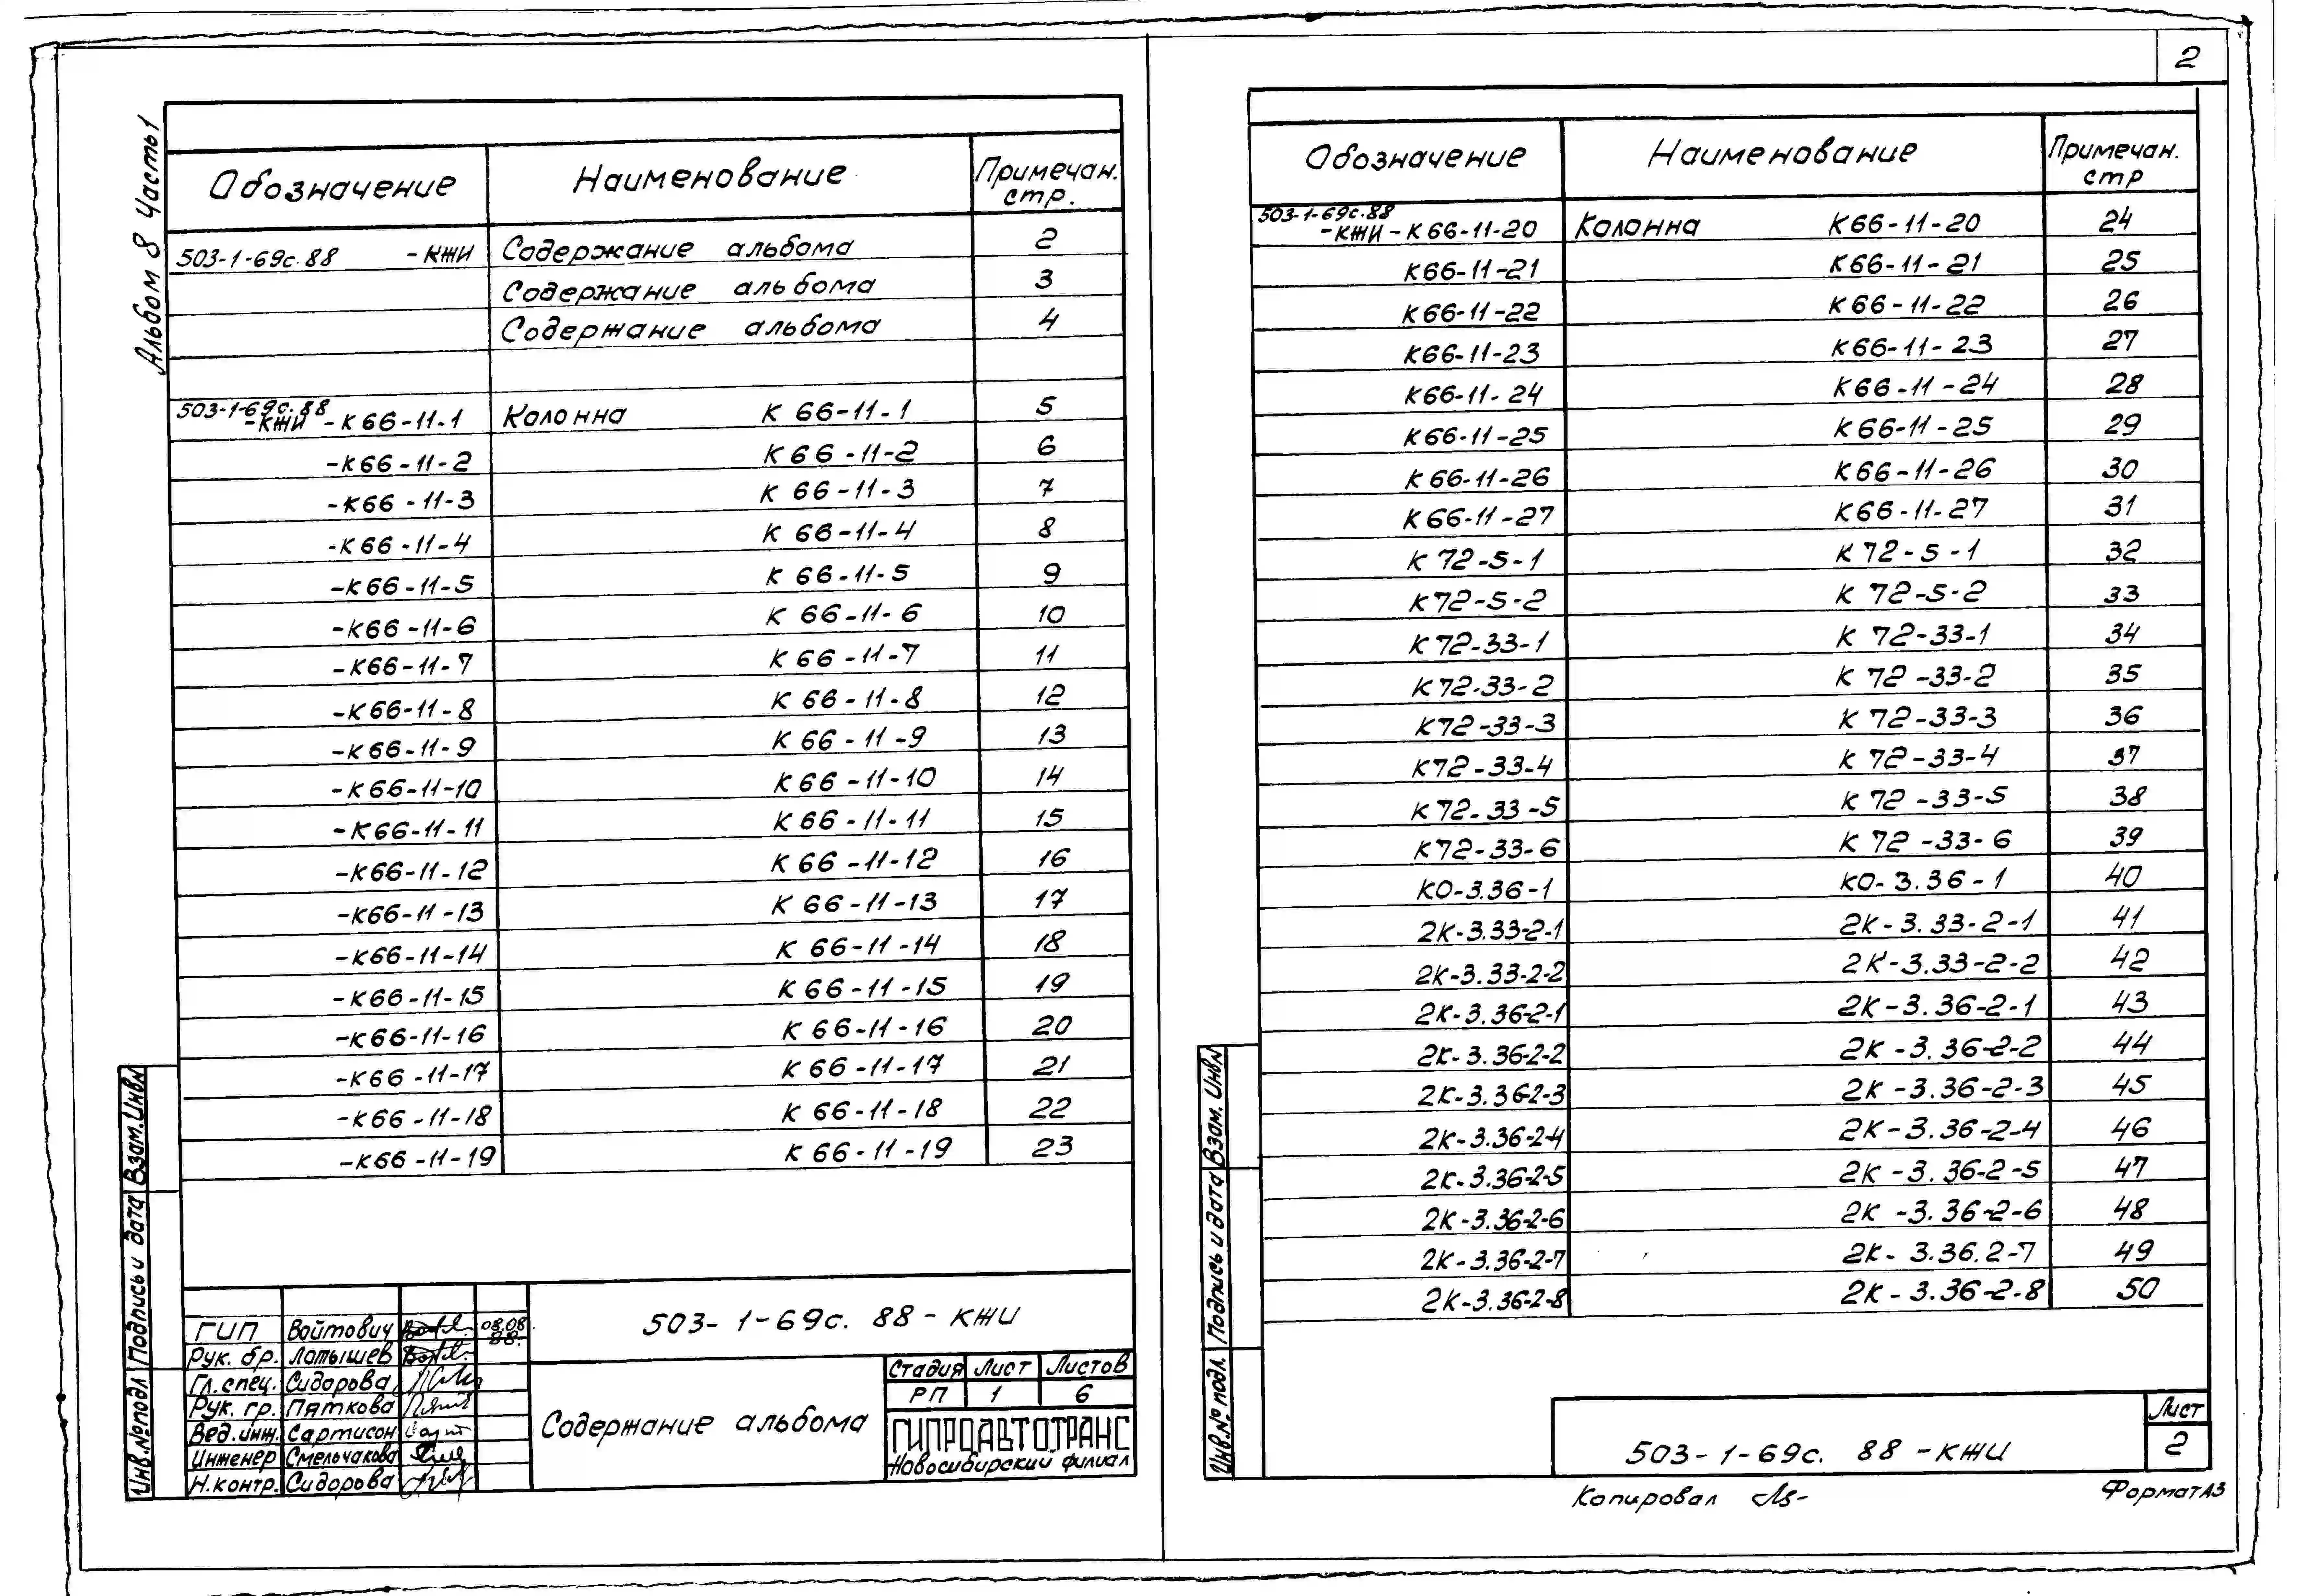 2
Альбом 8 Часть 1
Обозначение Наименование Примечан. стр.
503-1-69с.88 -КЖИ Содержание альбома 2
Содержание альбома 3
Содержание альбома 4
503-1-69с.88 -КЖИ -К66-11-1 Колонна К 66-11-1 5
-К66-11-2 К 66-11-2 6
-К66-11-3 К 66-11-3 7
-К66-11-4 К 66-11-4 8
-К66-11-5 К 66-11-5 9
-К66-11-6 К 66-11-6 10
-К66-11-7 К 66-11-7 11
-К66-11-8 К 66-11-8 12
-К66-11-9 К 66-11-9 13
-К66-11-10 К 66-11-10 14
-К66-11-11 К 66-11-11 15
-К66-11-12 К 66-11-12 16
-К66-11-13 К 66-11-13 17
-К66-11-14 К 66-11-14 18
-К66-11-15 К 66-11-15 19
-К66-11-16 К 66-11-16 20
-К66-11-17 К 66-11-17 21
-К66-11-18 К 66-11-18 22
-К66-11-19 К 66-11-19 23
Инв.№ подл Подпись и дата Взам.Инв№
503-1-69с. 88-КЖИ
ГИП Войтович 08.08.88.
Рук. бр. Латышев
Гл.спец. Сидорова
Рук. гр. Пяткова
Вед.инж. Сартисон
Инженер Смельчакова
Н.контр. Сидорова
Содержание альбома
Стадия Лист Листов
РП 1 6
ГИПРОАВТОТРАНС
Новосибирский филиал
Обозначение Наименование Примечан. стр
503-1-69с.88 -КЖИ-К66-11-20 Колонна К66-11-20 24
К66-11-21 К66-11-21 25
К66-11-22 К66-11-22 26
К66-11-23 К66-11-23 27
К66-11-24 К66-11-24 28
К66-11-25 К66-11-25 29
К66-11-26 К66-11-26 30
К66-11-27 К66-11-27 31
К 72-5-1 К 72-5-1 32
К72-5-2 К 72-5-2 33
К72-33-1 К 72-33-1 34
К72-33-2 К 72-33-2 35
К72-33-3 К 72-33-3 36
К72-33-4 К 72-33-4 37
К72-33-5 К 72-33-5 38
К72-33-6 К 72-33-6 39
КО-3.36-1 КО-3.36-1 40
2К-3.33-2-1 2К-3.33-2-1 41
2К-3.33-2-2 2К-3.33-2-2 42
2К-3.36-2-1 2К-3.36-2-1 43
2К-3.36-2-2 2К-3.36-2-2 44
2К-3.36-2-3 2К-3.36-2-3 45
2К-3.36-2-4 2К-3.36-2-4 46
2К-3.36-2-5 2К-3.36-2-5 47
2К-3.36-2-6 2К-3.36-2-6 48
2К-3.36-2-7 2К-3.36.2-7 49
2К-3.36-2-8 2К-3.36-2-8 50
Инв.№ подл. Подпись и дата Взам. Инв№
503-1-69с. 88-КЖИ
Лист
2
Копировал
Формат А3